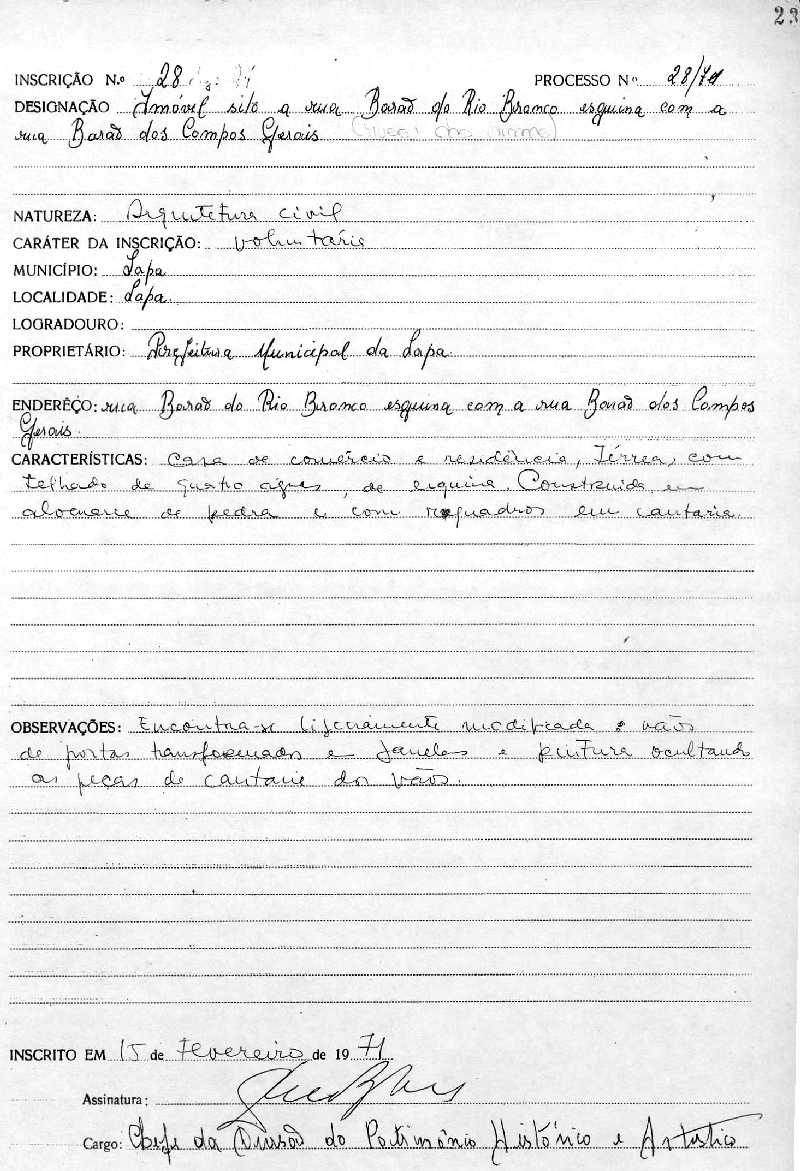 23
INSCRIÇÃO N.º 28 PROCESSO Nº 28/71
DESIGNAÇÃO Imóvel sito a rua Barão do Rio Branco esquina com a
rua Barão dos Campos Gerais
NATUREZA: Arquitetura civil
CARÁTER DA INSCRIÇÃO: voluntária
MUNICÍPIO: Lapa
LOCALIDADE: Lapa.
LOGRADOURO:
PROPRIETÁRIO: Prefeitura Municipal da Lapa.
ENDERÊÇO: rua Barão do Rio Branco esquina com a rua Barão dos Campos
Gerais.
CARACTERÍSTICAS: Casa de comércio e residência, térrea, com
telhado de quatro águas, de esquina. Construida em
alvenaria de pedra e com requadros em cantaria.
OBSERVAÇÕES: Encontra-se ligeiramente modificada: vãos
de portas transformados em janelas e pintura ocultando
as peças de cantaria dos vãos.
INSCRITO EM 15 de Fevereiro de 1971
Assinatura:
Cargo: Chefe da Divisão do Patrimônio Histórico e Artístico